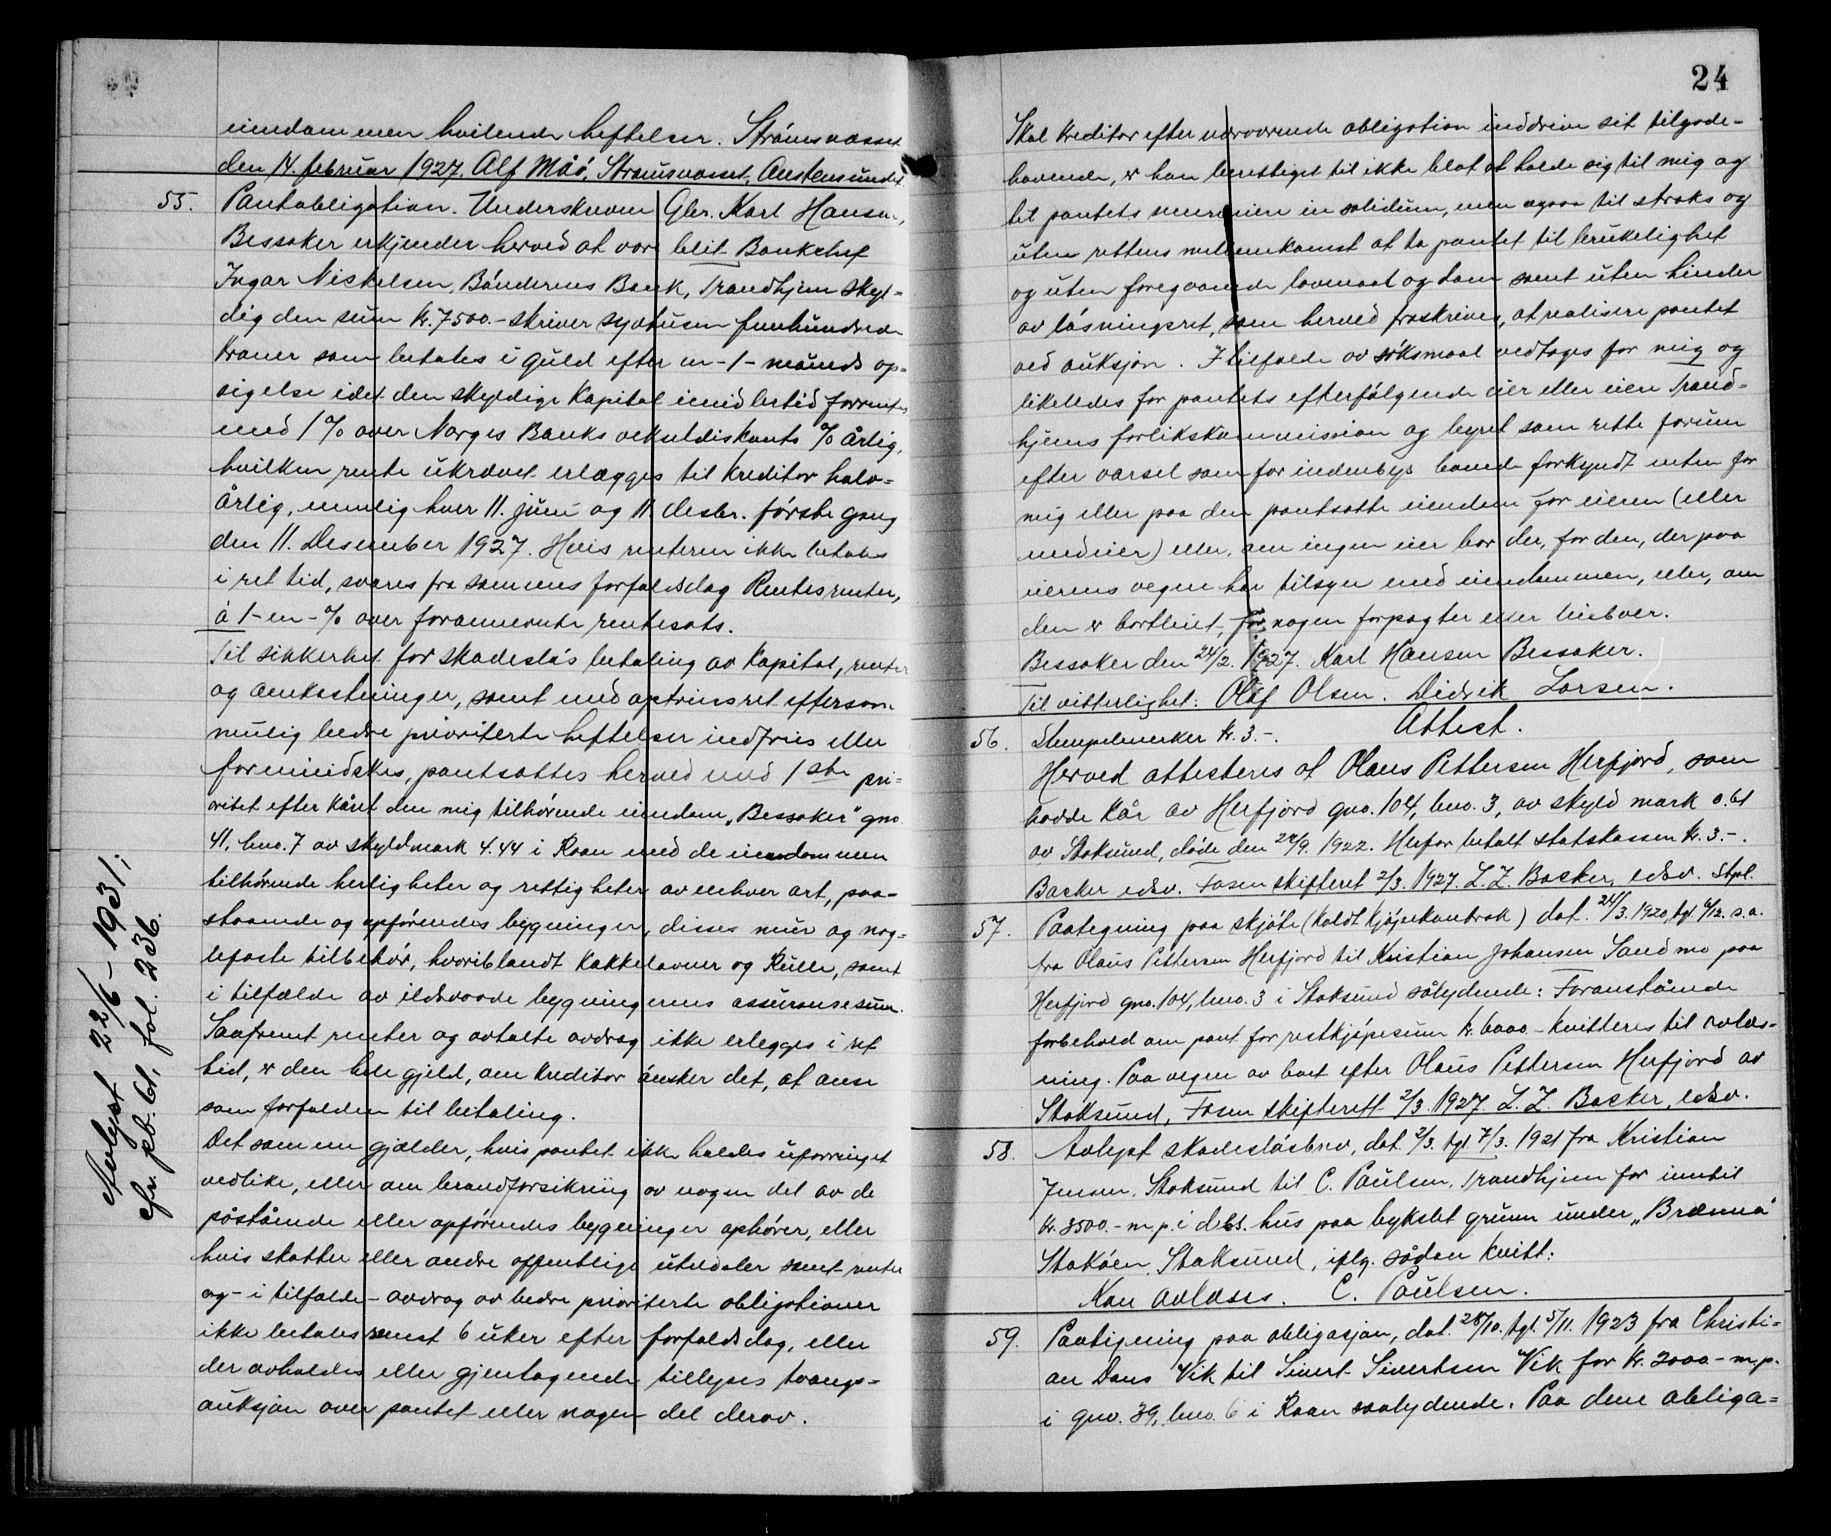 eiendommen hvilende heftelser. Strømsvasset
den 14. februar 1927. Alf Måø, Strømsvasset, Austensundet
55. Pantobligation. Underskreven Gbr. Karl Hansen,
Bessaker erkjender herved at være blit Bankchef
Ingar Nickelsen, Bøndernes Bank, Trondhjem skyl=
dig den sum kr. 7500.- skriver syvtusen femhundrede
kroner som betales i guld efter en -1- måneds op=
sigelse idet den skyldige kapital imidlertid forrentes
med 1 % over Norges Banks vekseldiskonto % årlig,
hvilken rente ukrævet erlægges til kreditor halv=
årlig, nemlig hver 11. juni og 11. desbr. første gang
den 11. Desember 1927. Hvis renterne ikke betales
i ret tid, svares fra sammes forfaldsdag Rentesrenter,
à 1-en-% over forannevnte rentesats.
Til sikkerhet for skadesløs betaling av kapital, renter
og omkostninger, samt med optrinsret eftersom
mulig bedre prioriterte heftelser indfries eller
formindskes, pantsættes herved med 1ste pri=
oritet efter kåret den mig tilhørende eiendom „Bessaker" gno
41, bno. 7 av skyldmark 4.44 i Roan med de eiendommen
tilhørende herligheter og rettigheter av enhver art, paa=
staaende og opførendes bygninger, disses mur og nag=
lefaste tilbehør, hvoriblandt kakkelovner og Rulle, samt
i tilfælde av ildsvaade bygningernes assuransesum.
Saafremt renter og avtalte avdrag ikke erlegges i ret
tid, er den hele gjeld, om kreditor ønsker det, at anse
som forfalden til betaling.
Det samme gjælder, hvis pantet ikke holdes uforringet
vedlike, eller om brandforsikring av nogen del av de
påstående eller opførendes bygninger ophører, eller
hvis skatter eller andre offentlige utredsler samt renter
og - i tilfælde - avdrag av bedre prioriterte obligationer
ikke betales senest 6 uker efter forfaldsdag, eller
der avholdes eller gjentagende tillyses tvangs=
auksjon over pantet eller nogen del derav.
Avlyst 22/6 - 1931;
cfr. pb. 61, fol. 236.
24
Skal kreditor efter nærværende obligation inddrive sit tilgode-
havende, er han berettiget til ikke blot at holde sig til mig og
til pantets senere eiere in solidum, men ogsaa til straks og
uten rettens mellemkomst at ta pantet til brukelighet
og uten foregaaende lovmaal og dom samt uten hinder
av løsningsret, som herved fraskrives, at realisere pantet
ved auksjon. I tilfælde av søksmaal vedtages for mig og
likeledes for pantets efterfølgende eier eller eiere Trond=
hjems forlikskommission og byret som rette forum
efter varsel som for indenbys boende forkyndt enten for
mig eller paa den pantsatte eiendom for eieren (eller
medeier) eller, om ingen eier bor der, for den, der paa
eierens vegne har tilsyn med eiendommen, eller, om
den er bortleiet, for nogen forpagter eller leieboer.
Bessaker den 24/2. 1927. Karl Hansen Bessaker.
Til vitterlighet: Olaf Olsen. Didrik Larsen.
56. Stempelmerker kr. 3.-. Attest.
Herved attesteres at Olaus Pettersen Herfjord, som
hadde kår av Herfjord gno. 104, bno. 3, av skyld mark 0.61
av Stoksund, døde den 28/9. 1922. Herfor betalt statskassen kr. 3.-.
Backer edsv. Fosen skifteret 2/3. 1927. L. Z. Backer, edsv. Stpl.
57. Paategning paa skjøte (kaldt kjøpekontrak) dat. 24/3. 1920, tgl. 6/12. s.a.
fra Olaus Pettersen Herfjord til Kristian Johansen Sandmo paa
Herfjord gno. 104, bno. 3 i Stoksund sålydende: Foranstående
forbehold om pant for restkjøpesum kr. 6000.- kvitteres til avlæs=
ning. Paa vegne av boet efter Olaus Pettersen Herfjord av
Stoksund, Fosen skifterett 2/3. 1927. L. Z. Backer, edsv.
58. Avlyst skadesløsbrev, dat. 2/3. tgl. 7/3. 1921 fra Kristian
Jensen, Stoksund til C. Paulsen, Trondhjem for inntil
kr. 3500.- m.p. i dets hus paa bykslet grunn under „Bræmnå"
Stokøen, Stoksund, iflg. sådan kvitt:
Kan avlæses. C. Paulsen.
59. Paategning paa obligasjon, dat. 28/10. tgl. 5/11. 1923 fra Christi=
an Dons Vik til Sivert Sivertsen Vik for kr. 2000.- m.p.
i gno. 39, bno. 6 i Roan saalydende. Paa dene obliga=